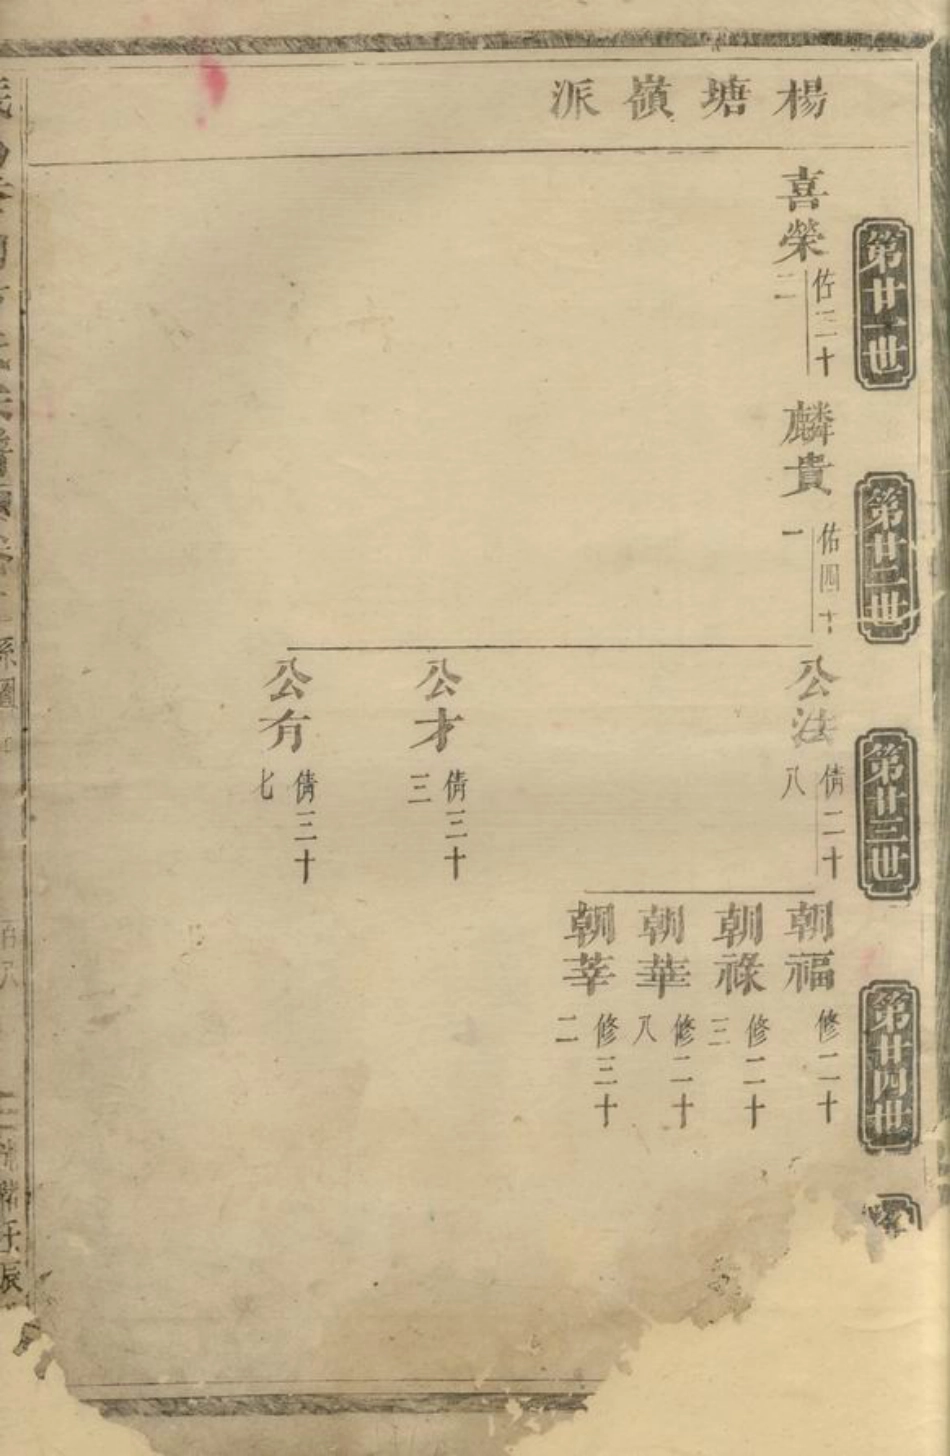 楊塘嶺派
第廿一世
喜榮
佐三十
二
第廿二世
麟貴
佑四十
一
第廿三世
公法
倩二十
八
公才
倩三十
三
公有
倩三十
七
第廿四世
朝福
修二十
朝祿
修二十
三
朝華
修二十
八
朝莘
修三十
二